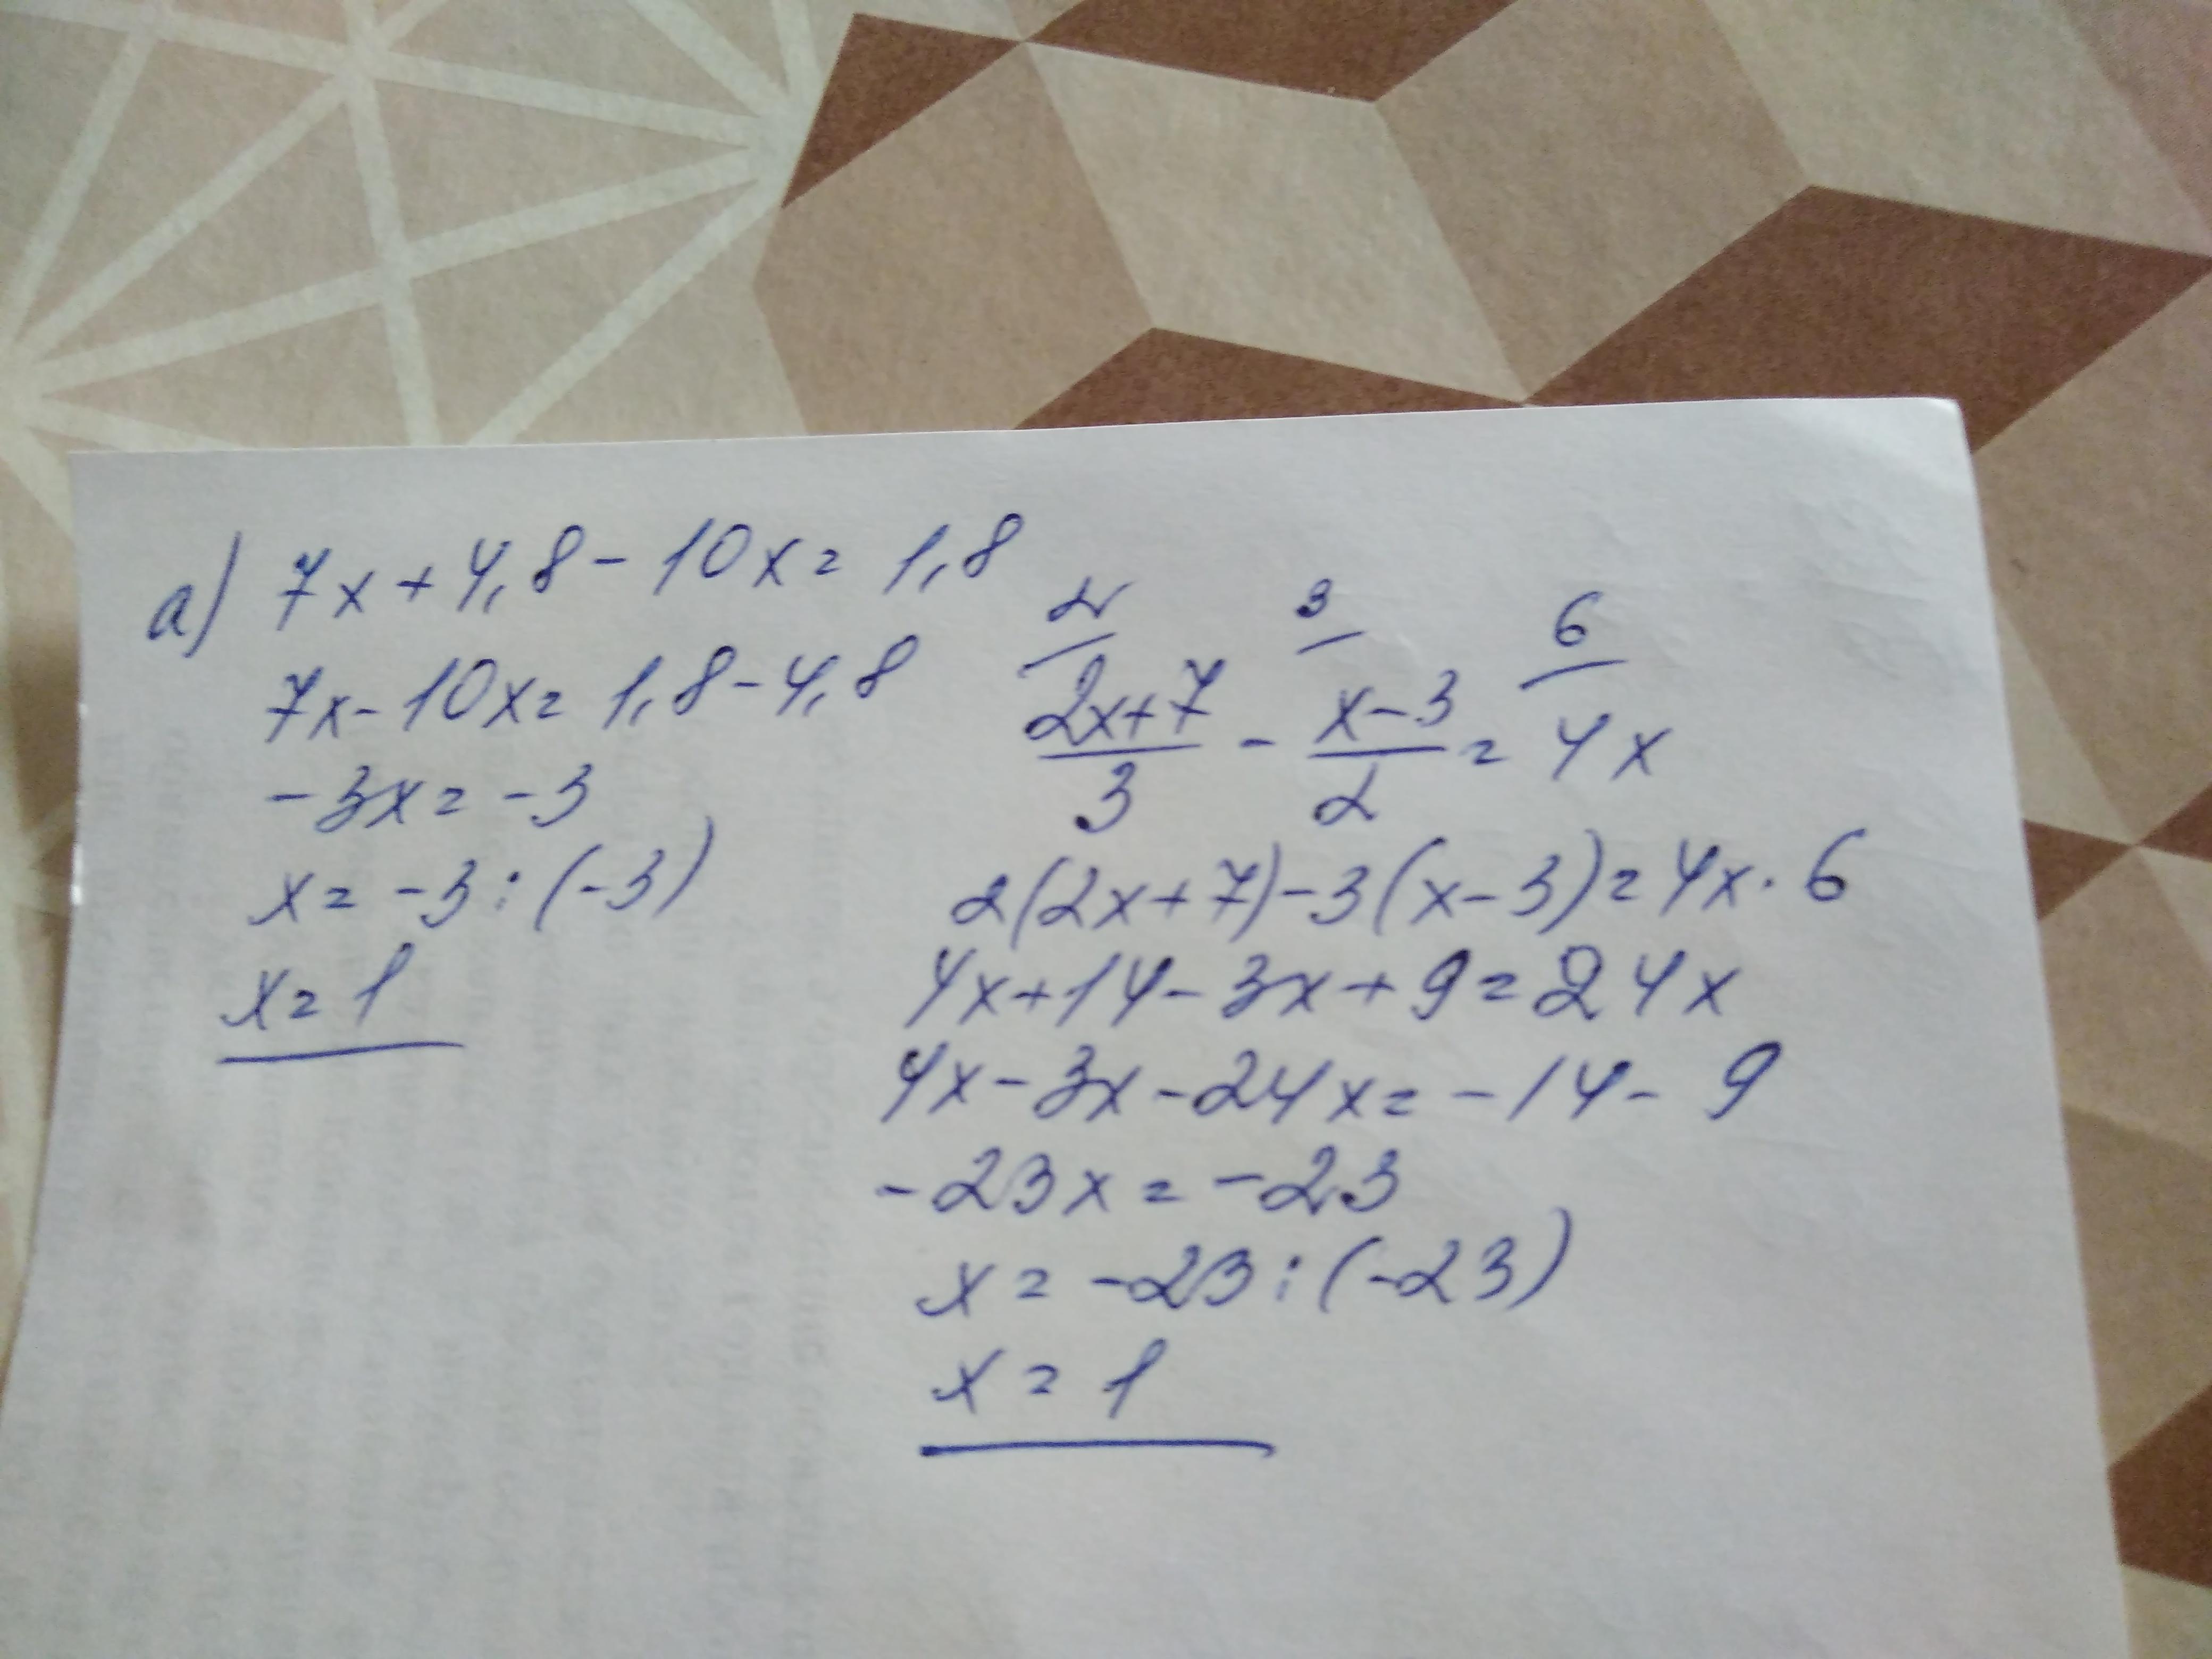 a) 7x+4,8-10x=1,8
7x-10x=1,8-4,8
-3x=-3
x=-3:(-3)
x=1
2 3 6
2x+7 x-3
— - — = 4x
3 2
2(2x+7)-3(x-3)=4x·6
4x+14-3x+9=24x
4x-3x-24x=-14-9
-23x=-23
x=-23:(-23)
x=1